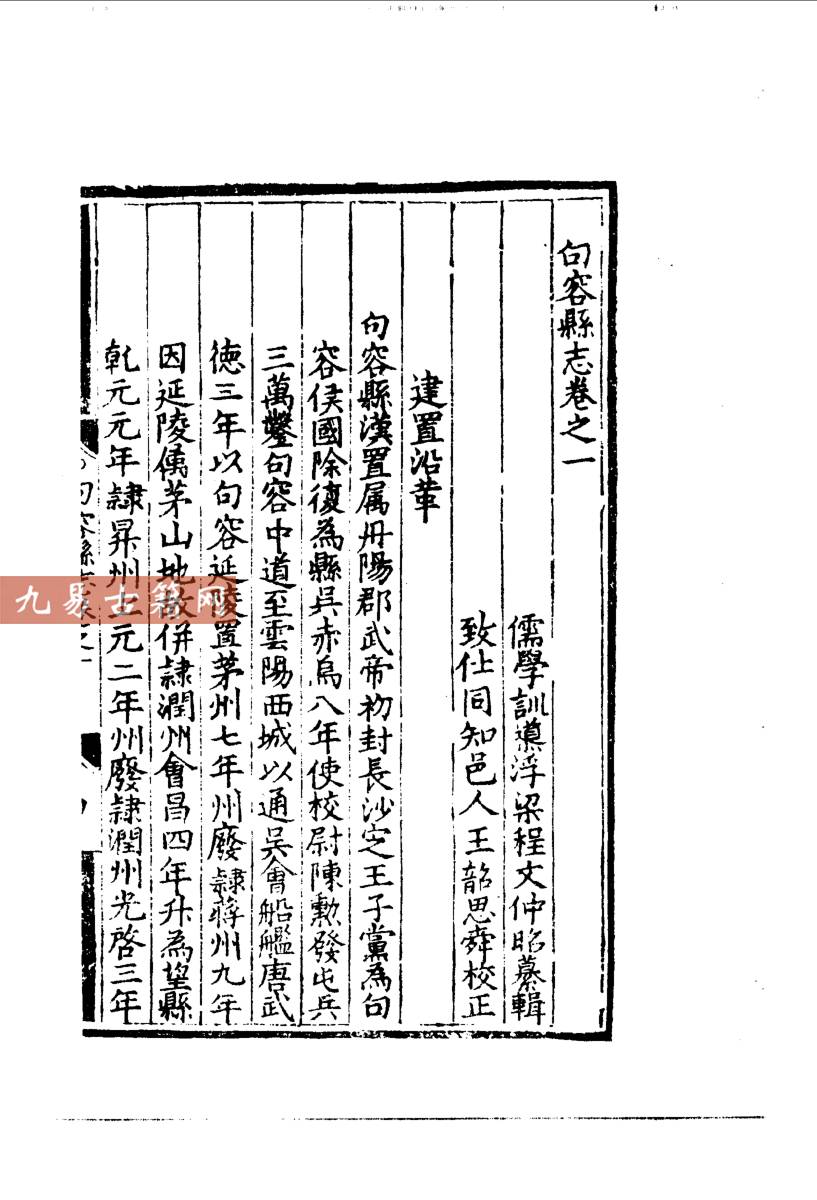 句容縣志卷之一
儒學訓導浮梁程文仲昭纂輯
致仕同知邑人王韶思舜校正
建置沿革
句容縣漢置属丹陽郡武帝初封長沙定王子黨為句
容侯國除復為縣吳赤烏八年使校尉陳勲發屯兵
三萬鑿句容中道至雲陽西城以通吳會船艦唐武
德三年以句容延陵置茅州七年州廢隷蔣州九年
因延陵舊茅山地故併隷潤州會昌四年升為望縣
乾元元年隷昇州上元二年州廢隷潤州光啓三年
句容縣志卷之一
九易古籍网